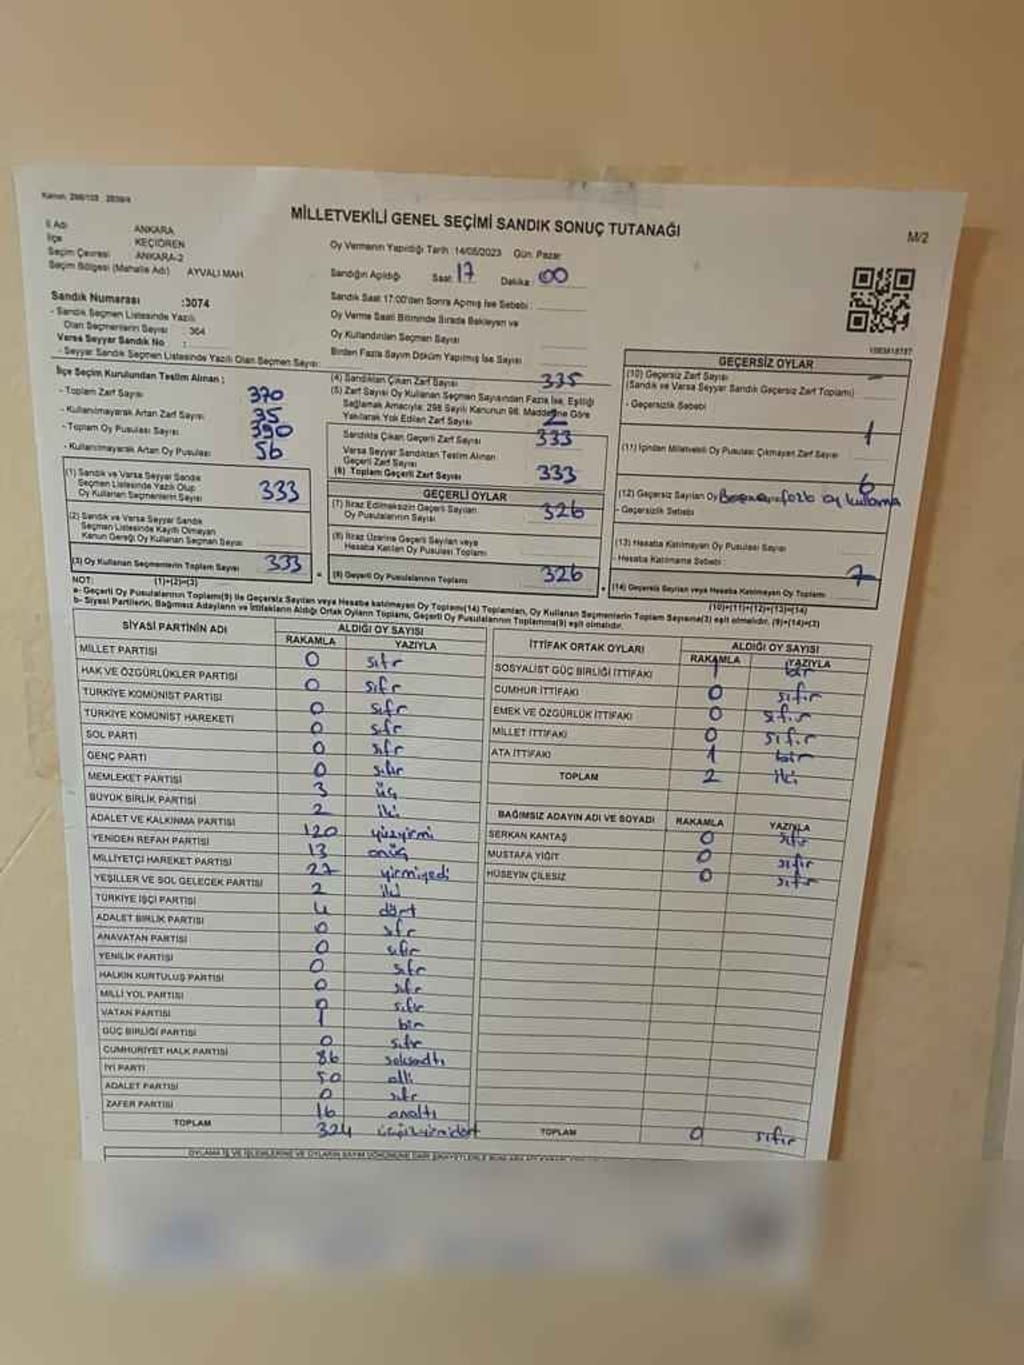 MİLLETVEKİLİ GENEL SEÇİMİ SANDIK SONUÇ TUTANAĞI
M/2
İl Adı ANKARA
İlçe KEÇİÖREN
Seçim Çevresi ANKARA-2
Seçim Bölgesi (Mahalle Adı) AYVALI MAH.
Sandık Numarası :3074
- Sandık Seçmen Listesinde Yazılı
Olan Seçmenlerin Sayısı : 364
Varsa Seyyar Sandık No :
- Seyyar Sandık Seçmen Listesinde Yazılı Olan Seçmen Sayısı
Oy Vermenin Yapıldığı Tarih :14/05/2023 Gün: Pazar
Sandığın Açıldığı Saat: 17 Dakika: 00
Sandık Saat 17:00'den Sonra Açmış İse Sebebi :
Oy Verme Saati Bitiminde Sırada Bekleyen ve
Oy Kullandırılan Seçmen Sayısı
Birden Fazla Sayım Döküm Yapılmış İse Sayısı
İlçe Seçim Kurulundan Teslim Alınan :
- Toplam Zarf Sayısı 370
- Kullanılmayarak Artan Zarf Sayısı 35
- Toplam Oy Pusulası Sayısı 390
- Kullanılmayarak Artan Oy Pusulası 56
(1) Sandık ve Varsa Seyyar Sandık
Seçmen Listesinde Yazılı Olup
Oy Kullanan Seçmenlerin Sayısı 333
(2) Sandık ve Varsa Seyyar Sandık
Seçmen Listesinde Kayıtlı Olmayan
Kanun Gereği Oy Kullanan Seçmen Sayısı
(3) Oy Kullanan Seçmenlerin Toplam Sayısı 333
(4) Sandıktan Çıkan Zarf Sayısı 335
(5) Zarf Sayısı Oy Kullanan Seçmen Sayısından Fazla İse, Eşitliği
Sağlamak Amacıyla; 298 Sayılı Kanunun 98. Maddesine Göre
Yakılarak Yok Edilen Zarf Sayısı 2
Sandıkta Çıkan Geçerli Zarf Sayısı 333
Varsa Seyyar Sandıktan Teslim Alınan
Geçerli Zarf Sayısı
(6) Toplam Geçerli Zarf Sayısı 333
GEÇERLİ OYLAR
(7) İtiraz Edilmeksizin Geçerli Sayılan
Oy Pusulalarının Sayısı 326
(8) İtiraz Üzerine Geçerli Sayılan veya
Hesaba Katılan Oy Pusulası Toplamı
(9) Geçerli Oy Pusulalarının Toplamı 326
GEÇERSİZ OYLAR
(10) Geçersiz Zarf Sayısı
(Sandık ve Varsa Seyyar Sandık Geçersiz Zarf Toplamı)
- Geçersizlik Sebebi
(11) İçinden Milletvekili Oy Pusulası Çıkmayan Zarf Sayısı 1
(12) Geçersiz Sayılan Oy 6
- Geçersizlik Sebebi fazla oy kullama
(13) Hesaba Katılmayan Oy Pusulası Sayısı
- Hesaba Katılmama Sebebi :
(14) Geçersiz Sayılan veya Hesaba Katılmayan Oy Toplamı 7
(10)+(11)+(12)+(13)=(14)
NOT: (1)+(2)=(3)
a- Geçerli Oy Pusulalarının Toplamı(9) İle Geçersiz Sayılan veya Hesaba katılmayan Oy Toplamı(14) Toplamları, Oy Kullanan Seçmenlerin Toplam Sayısına(3) eşit olmalıdır. (9)+(14)=(3)
b- Siyasi Partilerin, Bağımsız Adayların ve İttifakların Aldığı Ortak Oyların Toplamı, Geçerli Oy Pusulalarının Toplamına(9) eşit olmalıdır.
SİYASİ PARTİNİN ADI ALDIĞI OY SAYISI
RAKAMLA YAZIYLA
MİLLET PARTİSİ 0 sıfır
HAK VE ÖZGÜRLÜKLER PARTİSİ 0 sıfır
TÜRKİYE KOMÜNİST PARTİSİ 0 sıfır
TÜRKİYE KOMÜNİST HAREKETİ 0 sıfır
SOL PARTİ 0 sıfır
GENÇ PARTİ 0 sıfır
MEMLEKET PARTİSİ 3 üç
BÜYÜK BİRLİK PARTİSİ 2 iki
ADALET VE KALKINMA PARTİSİ 120 yüzyirmi
YENİDEN REFAH PARTİSİ 13 onüç
MİLLİYETÇİ HAREKET PARTİSİ 27 yirmiyedi
YEŞİLLER VE SOL GELECEK PARTİSİ 2 iki
TÜRKİYE İŞÇİ PARTİSİ 4 dört
ADALET BİRLİK PARTİSİ 0 sıfır
ANAVATAN PARTİSİ 0 sıfır
YENİLİK PARTİSİ 0 sıfır
HALKIN KURTULUŞ PARTİSİ 0 sıfır
MİLLİ YOL PARTİSİ 0 sıfır
VATAN PARTİSİ 1 bir
GÜÇ BİRLİĞİ PARTİSİ 0 sıfır
CUMHURİYET HALK PARTİSİ 86 seksenaltı
İYİ PARTİ 50 elli
ADALET PARTİSİ 0 sıfır
ZAFER PARTİSİ 16 onaltı
TOPLAM 324 üçyüzyirmidört
İTTİFAK ORTAK OYLARI ALDIĞI OY SAYISI
RAKAMLA YAZIYLA
SOSYALİST GÜÇ BİRLİĞİ İTTİFAKI 1 bir
CUMHUR İTTİFAKI 0 sıfır
EMEK VE ÖZGÜRLÜK İTTİFAKI 0 sıfır
MİLLET İTTİFAKI 0 sıfır
ATA İTTİFAKI 1 bir
TOPLAM 2 iki
BAĞIMSIZ ADAYIN ADI VE SOYADI RAKAMLA YAZIYLA
SERKAN KANTAŞ 0 sıfır
MUSTAFA YİĞİT 0 sıfır
HÜSEYİN ÇİLESİZ 0 sıfır
TOPLAM 0 sıfır